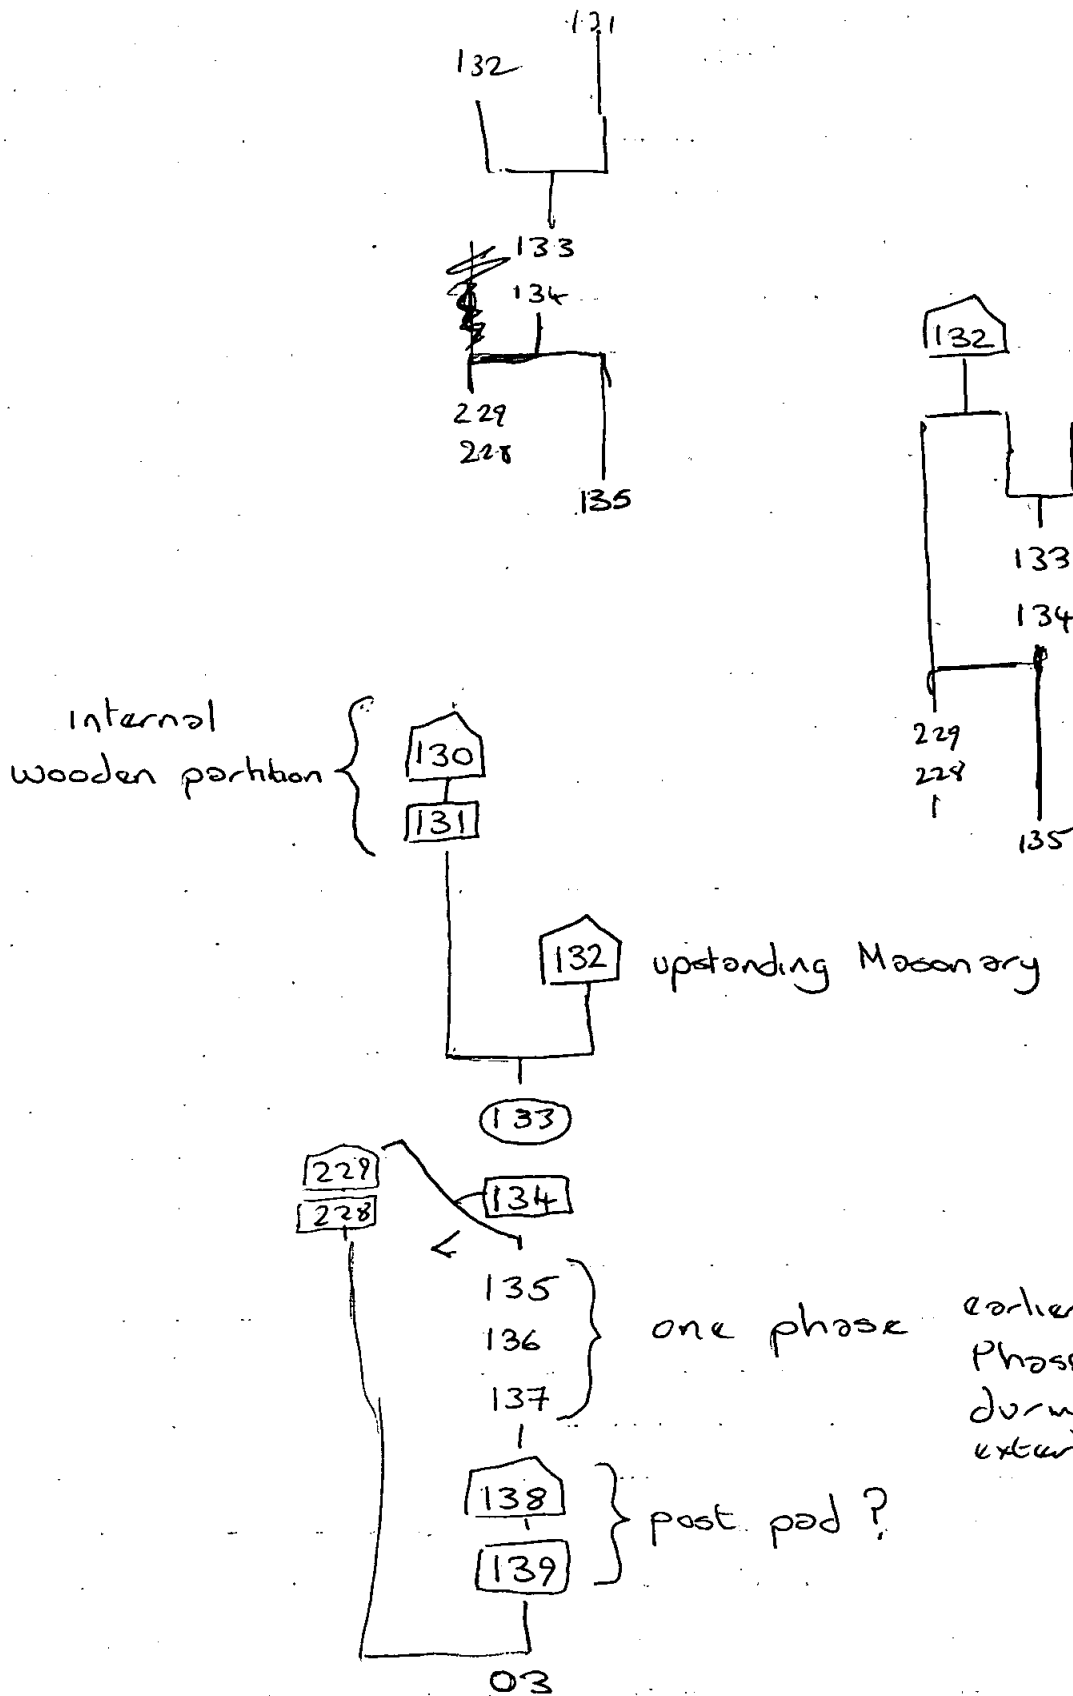 131
132
133
134
229
228
135
132
133
134
229
228
135
internal
wooden partition
130
131
132 upstanding Masonary
133
229
134
228
<
135
136 one phase
137
earlier
Phas
durin
exter
138
post pad ?
139
03